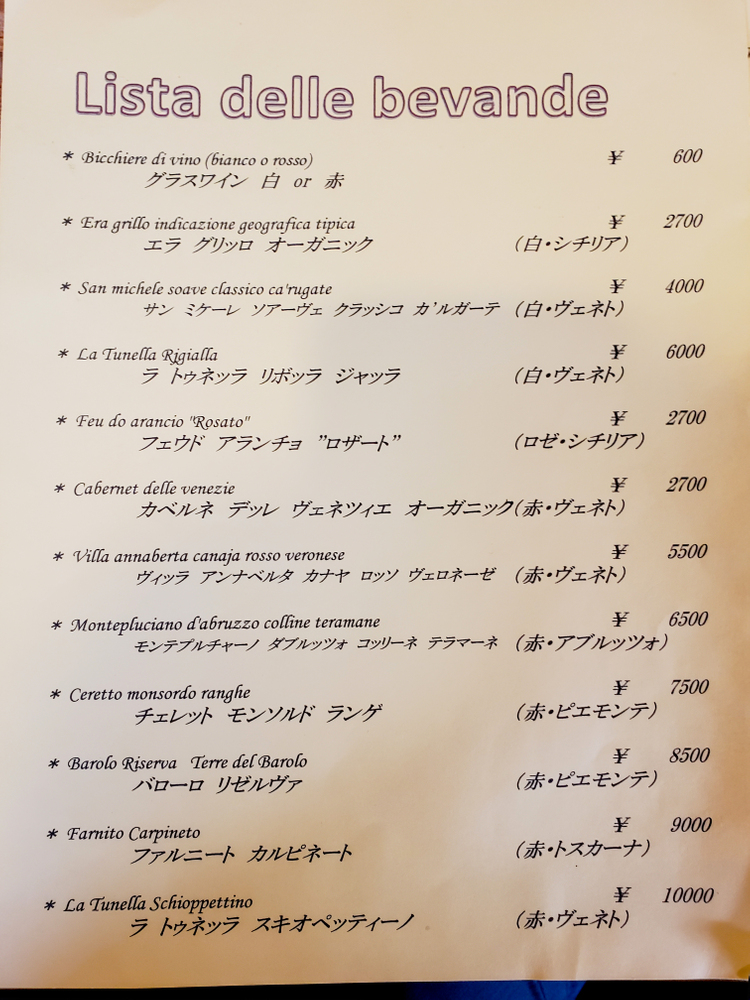 Lista delle bevande
* Bicchiere di vino (bianco o rosso) ¥ 600
グラスワイン 白 or 赤
* Era grillo indicazione geografica tipica ¥ 2700
エラ グリッロ オーガニック (白・シチリア)
* San michele soave classico ca'rugate ¥ 4000
サン ミケーレ ソアーヴェ クラッシコ カ'ルガーテ (白・ヴェネト)
* La Tunella Rjgialla ¥ 6000
ラ トゥネッラ リボッラ ジャッラ (白・ヴェネト)
* Feu do arancio "Rosato" ¥ 2700
フェウド アランチョ ”ロザート” (ロゼ・シチリア)
* Cabernet delle venezie ¥ 2700
カベルネ デッレ ヴェネツィエ オーガニック(赤・ヴェネト)
* Villa annaberta canaja rosso veronese ¥ 5500
ヴィッラ アンナベルタ カナヤ ロッソ ヴェロネーゼ (赤・ヴェネト)
* Montepluciano d'abruzzo colline teramane ¥ 6500
モンテプルチャーノ ダブルッツォ コッリーネ テラマーネ (赤・アブルッツォ)
* Ceretto monsordo ranghe ¥ 7500
チェレット モンソルド ランゲ (赤・ピエモンテ)
* Barolo Riserva Terre del Barolo ¥ 8500
バローロ リゼルヴァ (赤・ピエモンテ)
* Farnito Carpineto ¥ 9000
ファルニート カルピネート (赤・トスカーナ)
* La Tunella Schioppettino ¥ 10000
ラ トゥネッラ スキオペッティーノ (赤・ヴェネト)